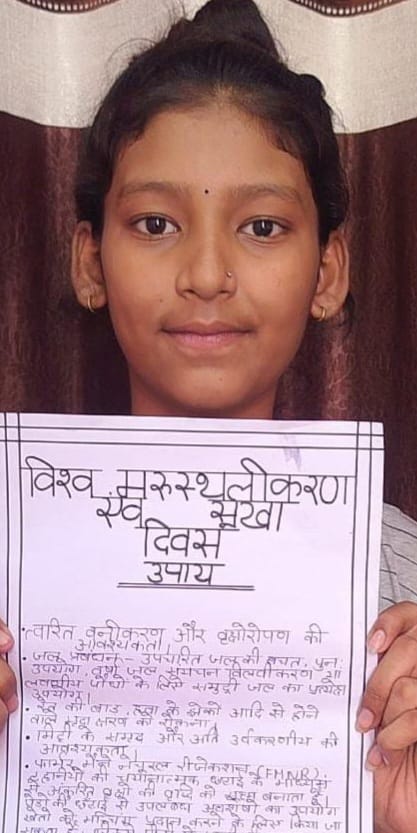 विश्व मरुस्थलीकरण
एंव सूखा
दिवस
उपाय
• त्वरित वनीकरण और वृक्षोरोपण की
आवश्यकता।
• जल प्रबंधन:- उपचारित जल की बचत, पुनः
उपयोग, वर्षा जल संचयन विलवणीकरण या
लवणीय पौधों के लिये समुद्री जल का प्रत्यक्ष
उपयोग।
• रेत की बाड़, हवा के झोंको आदि से होने
वाले मृदा क्षरण को रोकना।
• मिट्टी के समृद्ध और अति उर्वकरणीय की
आवश्यकता।
• फार्मर मैनेज नेचुरल रीजेनरेशन (FMNR):
टहनियों की चयनात्मक छटाई के माध्यम
से अंकुरित वृक्षों की वृद्धि को सक्षम बनाता है।
वृक्षों की छटाई से उपलब्ध अवशेषों का उपयोग
खेतों को मल्चिंग प्रदान करने के लिए किया जा